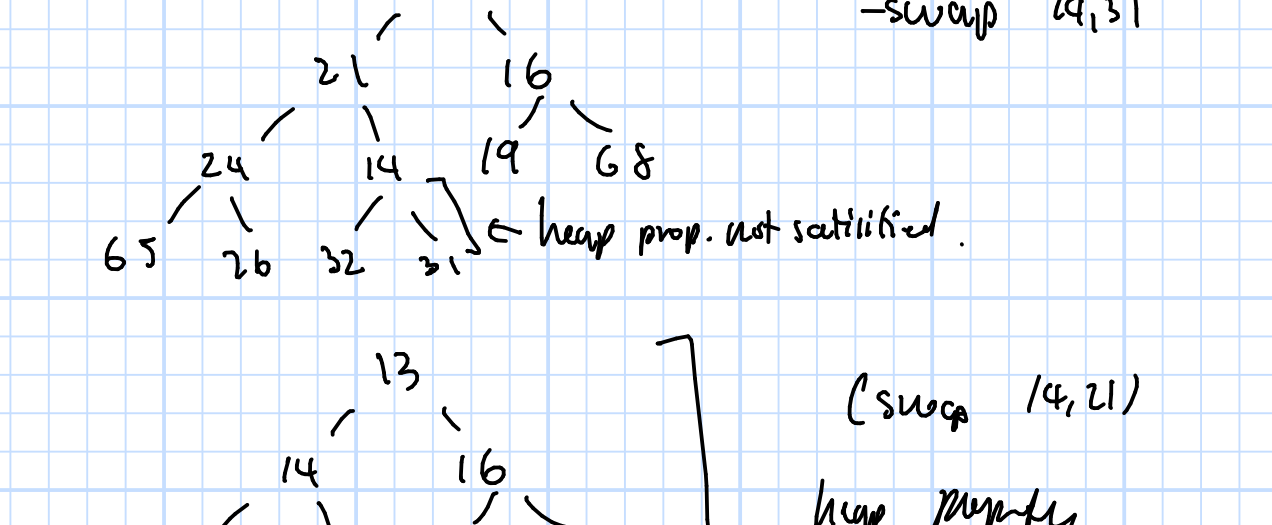 -swap 14,31
21 16
24 14 19 68
65 26 32 31 ← heap prop. not satilitied.
13
(swap 14,21)
14 16
heap property